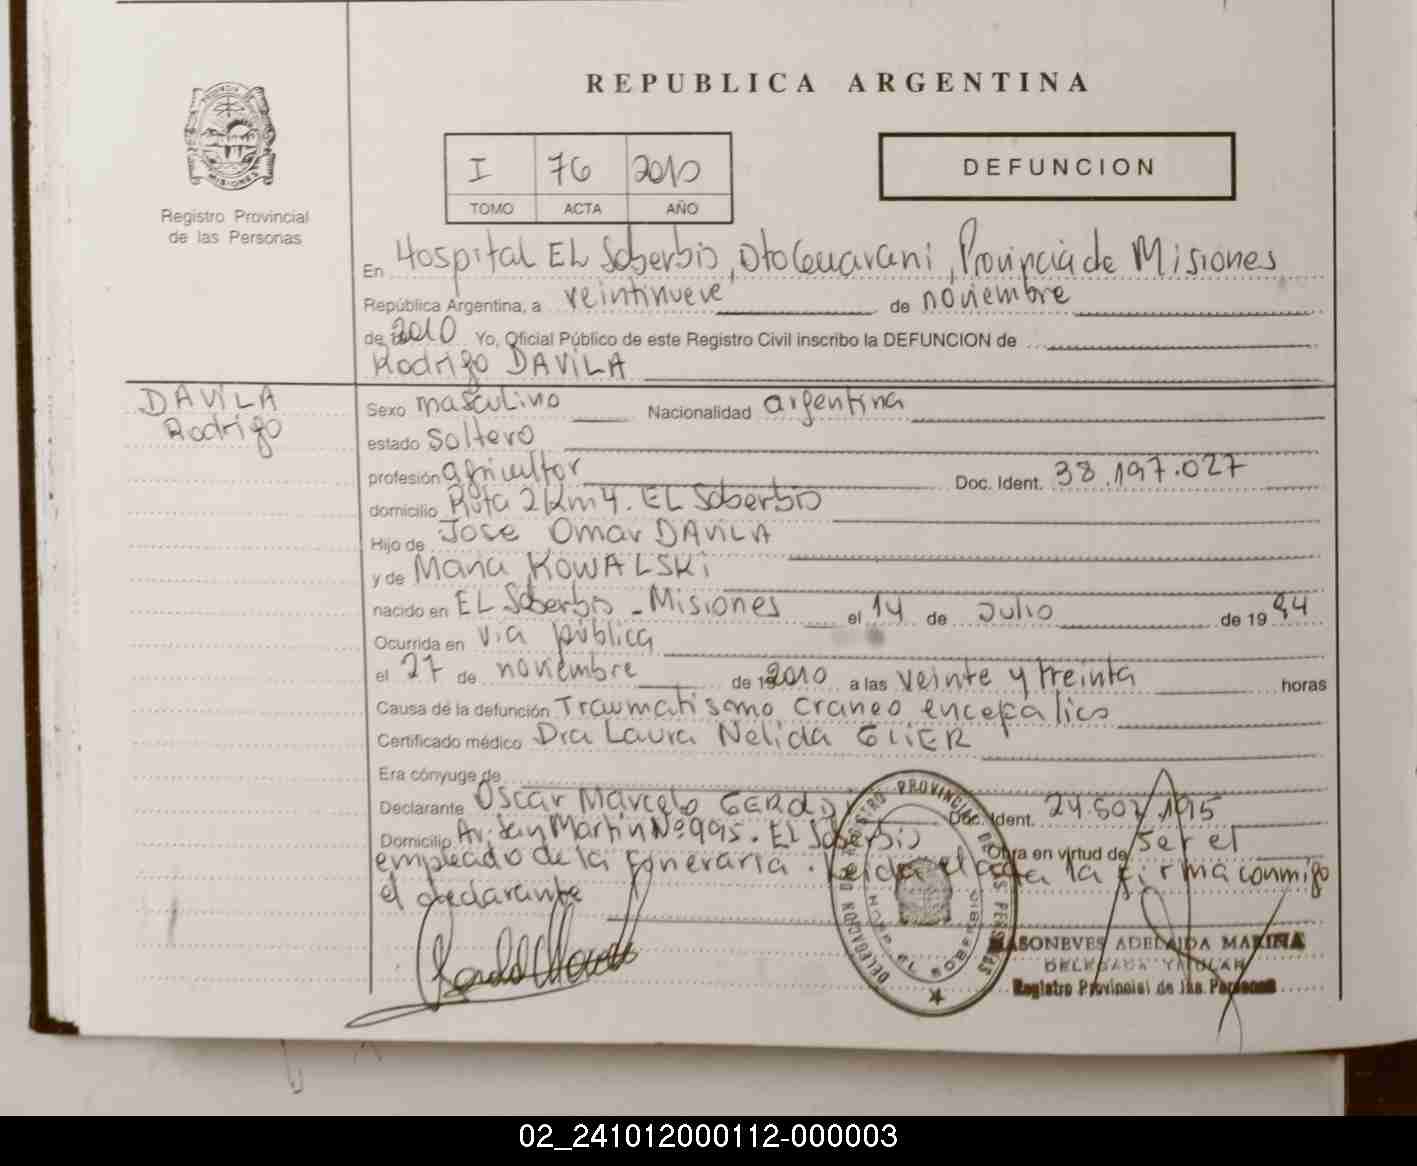 REPUBLICA ARGENTINA
I 76 2010
TOMO ACTA AÑO
DEFUNCION
PROVINCIA DE
MISIONES
Registro Provincial
de las Personas
En Hospital EL Soberbio, Dto Guarani, Provincia de Misiones
República Argentina, a veintinueve de noviembre
de 2010 Yo, Oficial Público de este Registro Civil inscribo la DEFUNCION de
Rodrigo DAVILA
DAVILA
Rodrigo
Sexo masculino Nacionalidad argentina
estado soltero
profesión agricultor Doc. Ident. 38.197.027
domicilio Ruta 2 Km 4. EL Soberbio
Hijo de Jose Omar DAVILA
y de Maria KOWALSKi
nacido en EL Soberbio - Misiones el 14 de Julio de 19 94
Ocurrida en via pública
el 27 de noviembre de 2010 a las veinte y treinta horas
Causa de la defunción Traumatismo craneo encefalico
Certificado médico Dra Laura Nelida GLiER
Era cónyuge de
Declarante Oscar Marcelo Doc. Ident. 24.502.195
Domicilio Av. San Martin Nº 995. EL Soberbio Obra en virtud de ser el
empleado de la funeraria. Leida el acta la firma conmigo
el declarante
DELEGACION DEL REGISTRO PROVINCIAL DE LAS PERSONAS
HOSP. EL SOBERBIO
MASONEVES ADELAIDA MARINA
DELEGADA TITULAR
Registro Provincial de las Personas
02_241012000112-000003